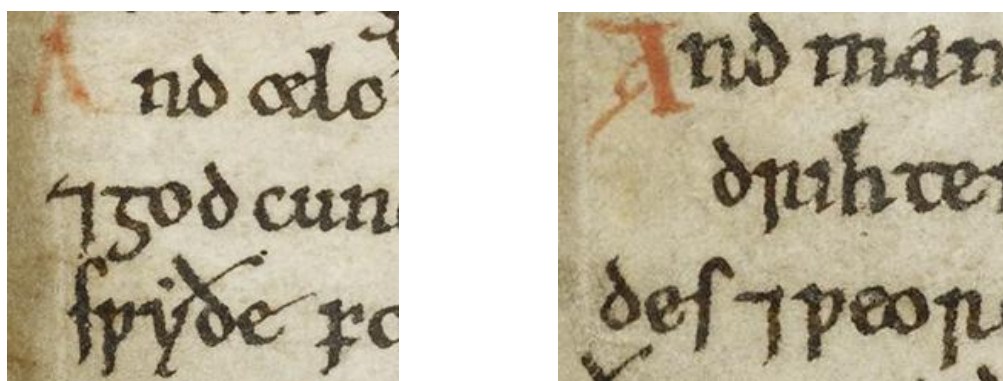 And ælo
⁊god cun
ſƿẏðe fo
And man
drihte
deſ ⁊ƿeor